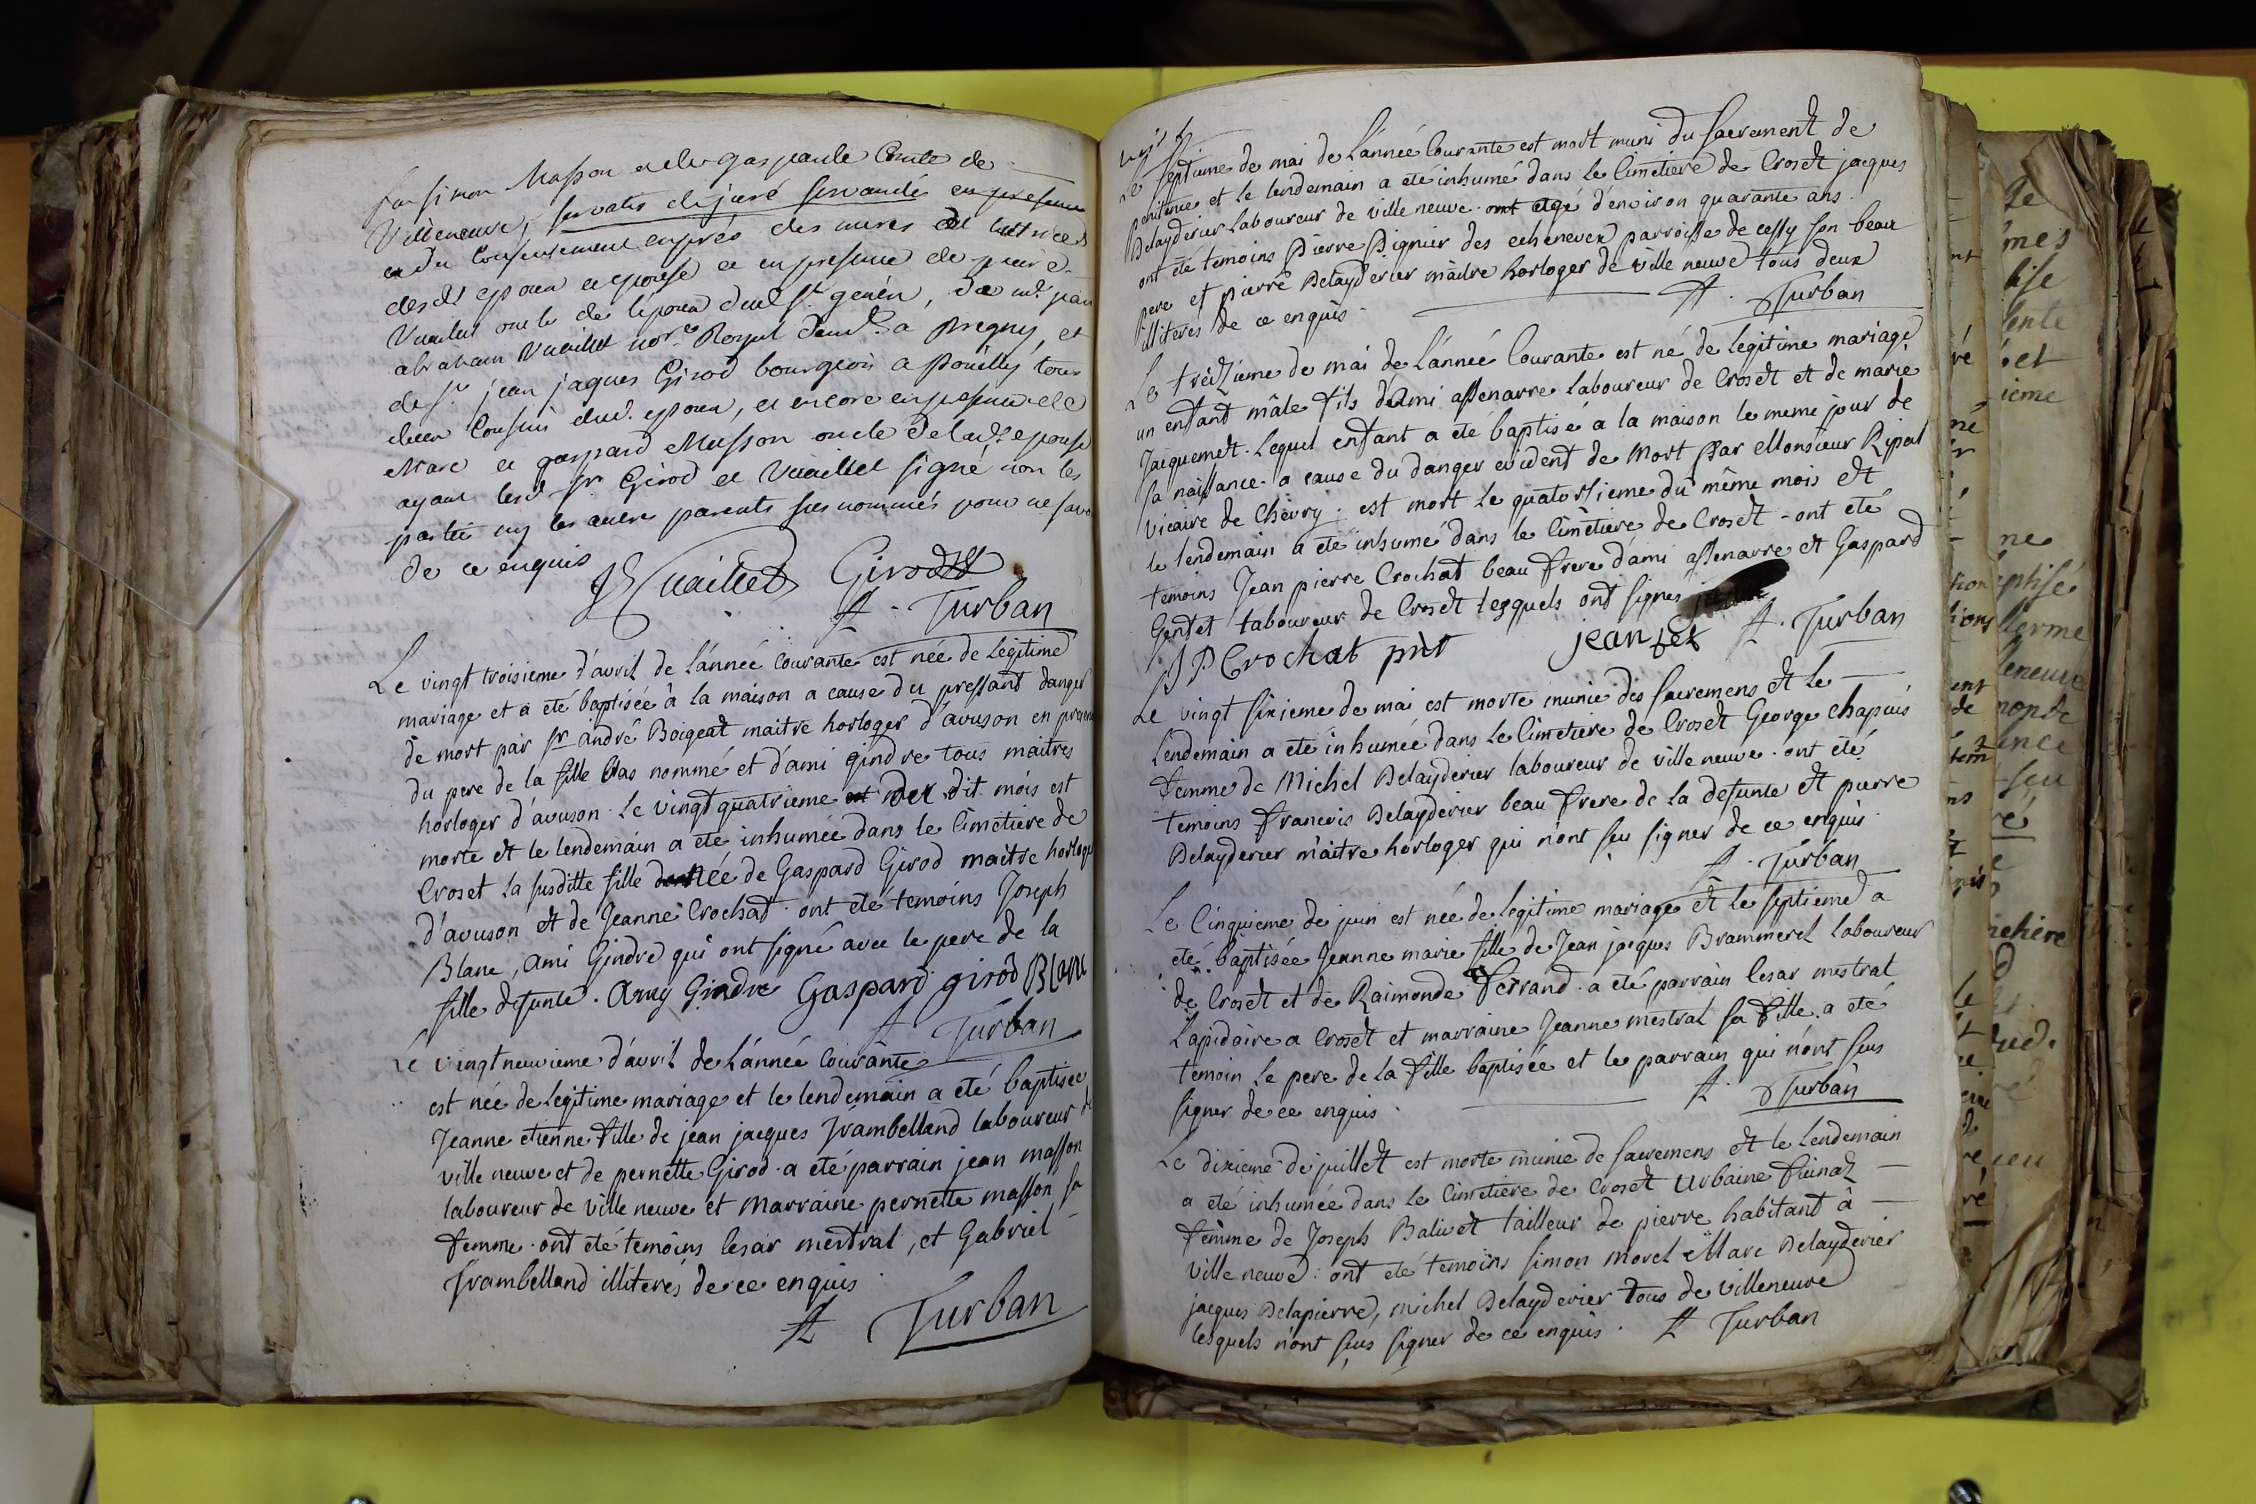 feu simon Masson et de gaspade Comte de
Villeneuve, servatis de juré servandis en presence
et du consentement exprés des meres et tutrices
desdts epoux et epouse et en presence de pierre
Vuaillet oncle de lepoux dud. Sr. genén, de mr. jean
abraham Vuaillet nore. Royal demt. a Pregny, et
de Sr. jean jaques Girod bourgeois a Pouilly tous
deux Cousins dud. epoux, et encore en presence de
Marc et gaspard Masson oncle de ladte. epouse
ayant lesd. Srs. Girod et Vuaillet signé non les
parties ny les autres parents sus nommés pour ne savoir
de ce enquis
Vuaillet Girod
A. Turban
Le vingt troisieme d'avril de l'année courante est née de legitime
mariage et a été baptisée à la maison a cause du pressant danger
de mort par Sr andré Boigeat maitre horloger d'avuson en presence
du pere de la fille bas nommé et d'ami gindre tous maitres
horloger d'avuson. Le vingt quatrieme du dit mois est
morte et le lendemain a eté inhumée dans le Cimetiere de
Croset la susditte fille née de Gaspard Girod maitre horloger
d'avuson et de Jeanne Crochat. ont eté temoins Joseph
Blanc, ami Gindre qui ont signé avec le pere de la
fille defunte. Amy Gindre Gaspard girod Blanc
A Turban
Le vingt neuvieme d'avril de L'année Courante
est née de legitime mariage et le lendemain a eté baptisée
Jeanne etienne fille de jean jacques Frambelland laboureur de
ville neuve et de pernette Girod. a eté parrain jean masson
laboureur de ville neuve et marraine pernette masson sa
femme. ont eté temoins Cesar mestral, et Gabriel
Frambelland illiterés de ce enquis
A Turban
Le septieme de mai de L'année Courante est mort muni du sacrement de
penitence et le lendemain a eté inhumé dans le Cimetiere de Croset jacques
Delayderier laboureur de ville neuve. agé d'environ quarante ans.
ont eté temoins Pierre Pignier des echenevex parroisse de cessy son beau
pere et pierre Delayderier maitre horloger de ville neuve tous deux
illiteres de ce enquis. A. Turban
Le treizieme de mai de L'année Courante est né de legitime mariage
un enfant mâle fils d'ami assenarre laboureur de Croset et de marie
Jacquemet. Lequel enfant a eté baptisé a la maison le meme jour de
sa naissance a cause du danger evident de mort par Monsieur Ripat
vicaire de Chevry. est mort le quatorsieme du même mois et
le lendemain a eté inhumé dans le Cimetiere de Croset - ont eté
temoins Jean pierre Crochat beau frere d'ami assenarre et Gaspard
Gentet laboureur de Croset lesquels ont signes
J P Crochat pnt jeantet A. Turban
Le vingt sixieme de mai est morte munie des sacremens et le
lendemain a eté inhumée dans le Cimetiere de Croset George chapuis
femme de Michel Delayderier laboureur de ville neuve. ont eté
temoins francois Delayderier beau frere de la defunte et pierre
Delayderier maitre horloger qui n'ont seu signer de ce enquis.
A. Turban
Le Cinquieme de juin est née de legitime mariage et le septieme a
eté baptisée Jeanne marie fille de Jean jacques Brammerel laboureur
de Croset et de Raimonde Ferrand. a eté parrain Cesar mestral
Lapidaire a Croset et marraine Jeanne mestral sa fille. a eté
temoin le pere de la fille baptisée et le parrain qui n'ont seus
signer de ce enquis. A. Turban
Le dixieme de juillet est morte munie de sacremens et le lendemain
a eté inhumée dans le Cimetiere de Croset Urbaine
femme de Joseph Balivet tailleur de pierre habitant à
ville neuve. ont eté temoins simon morel Marc Delayderier
jacques Delapierre, michel Delayderier tous de villeneuve
lesquels n'ont seus signer de ce enquis. A Turban